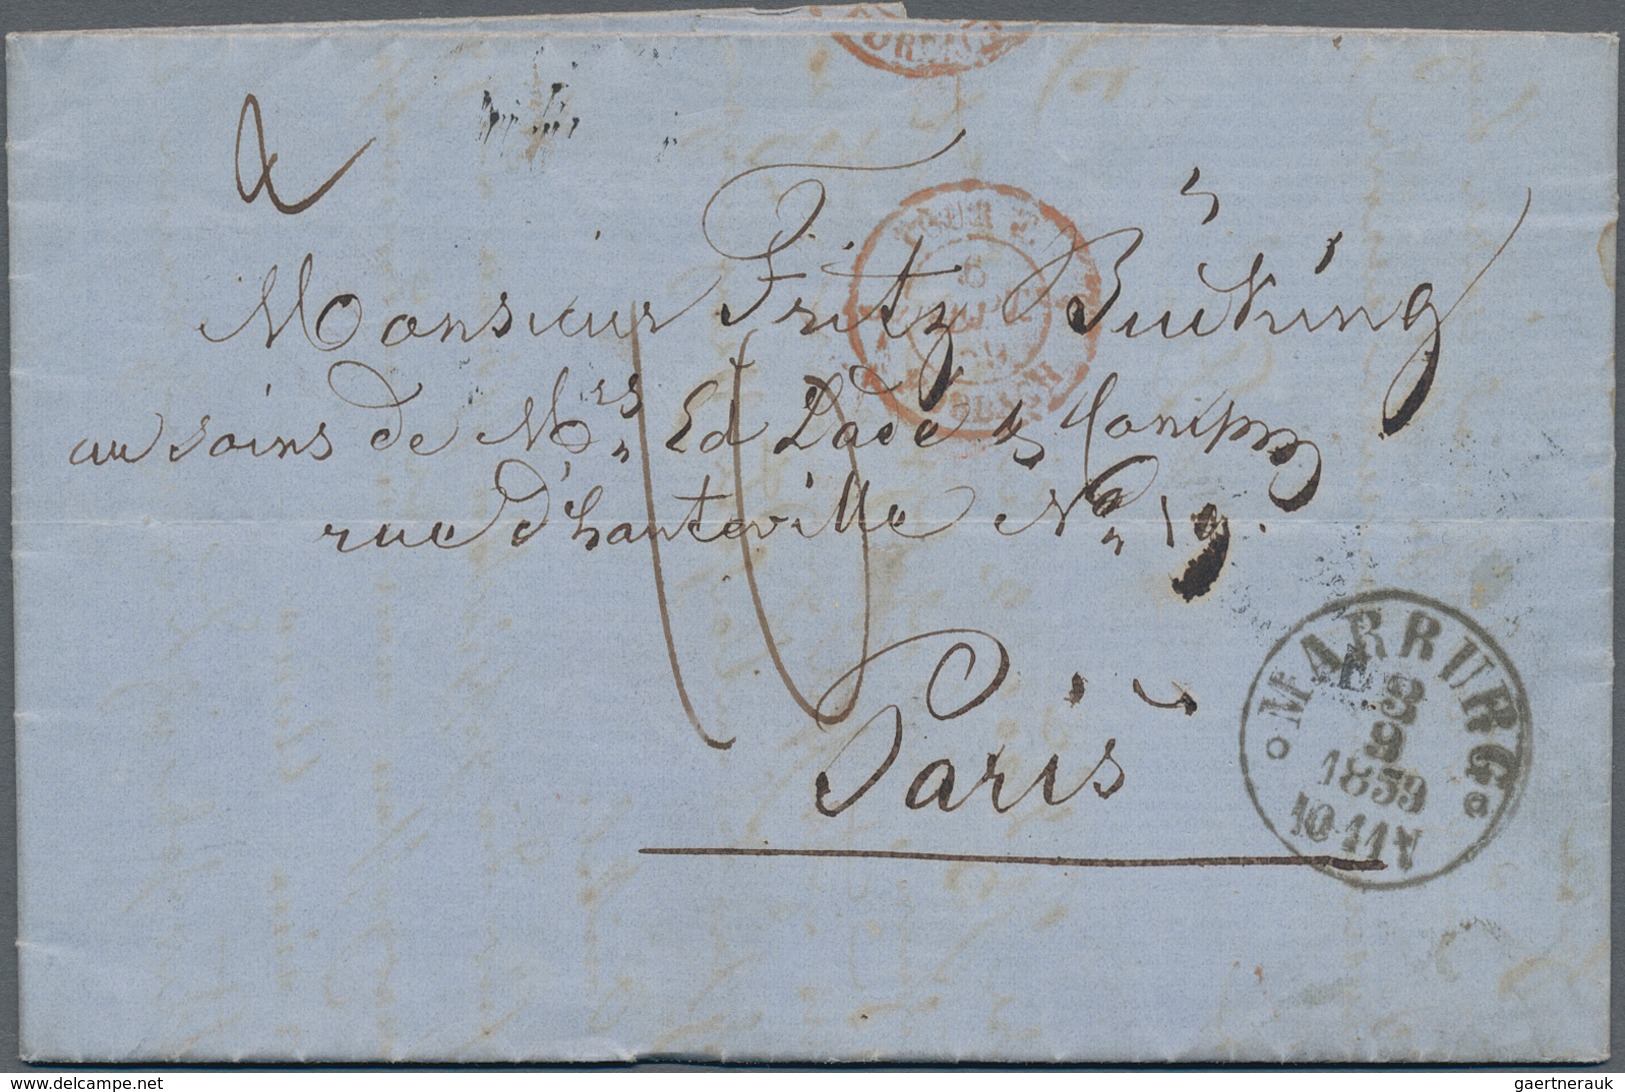 Monsieur Fritz Bücking
au soins de Mrs Ed Dadé & Comp
rue d'hauteville No 19.
Paris
10
TOUR T.
6
FORBACH
MARBURG
3
9
1859
10-11 V
delcampe.net
gaertnerauk